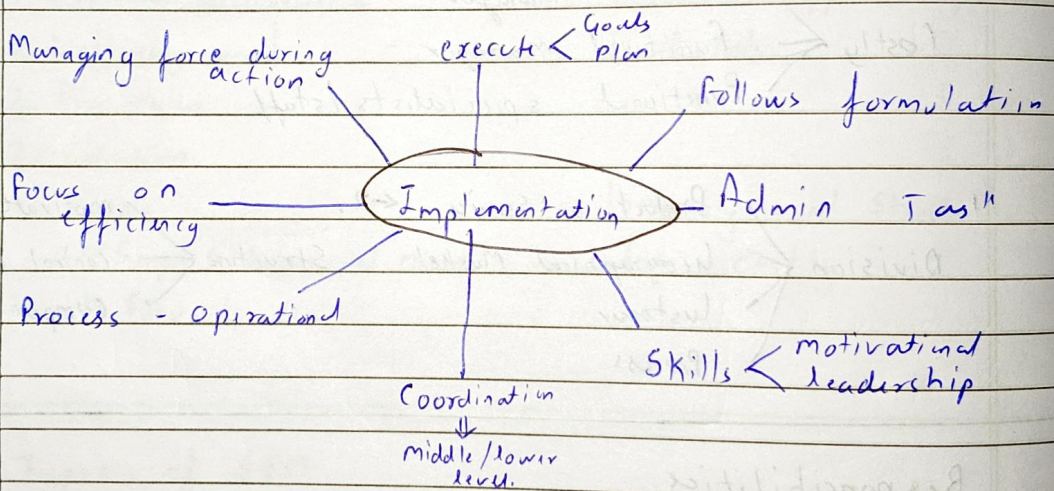 Managing force during
action
execute < Goals
Plan
Follows formulation
Focus on
efficiency
Implementation
Admin Task
Process - operational
Skills < motivational
leadership
Coordination
⇓
Middle/lower
level.